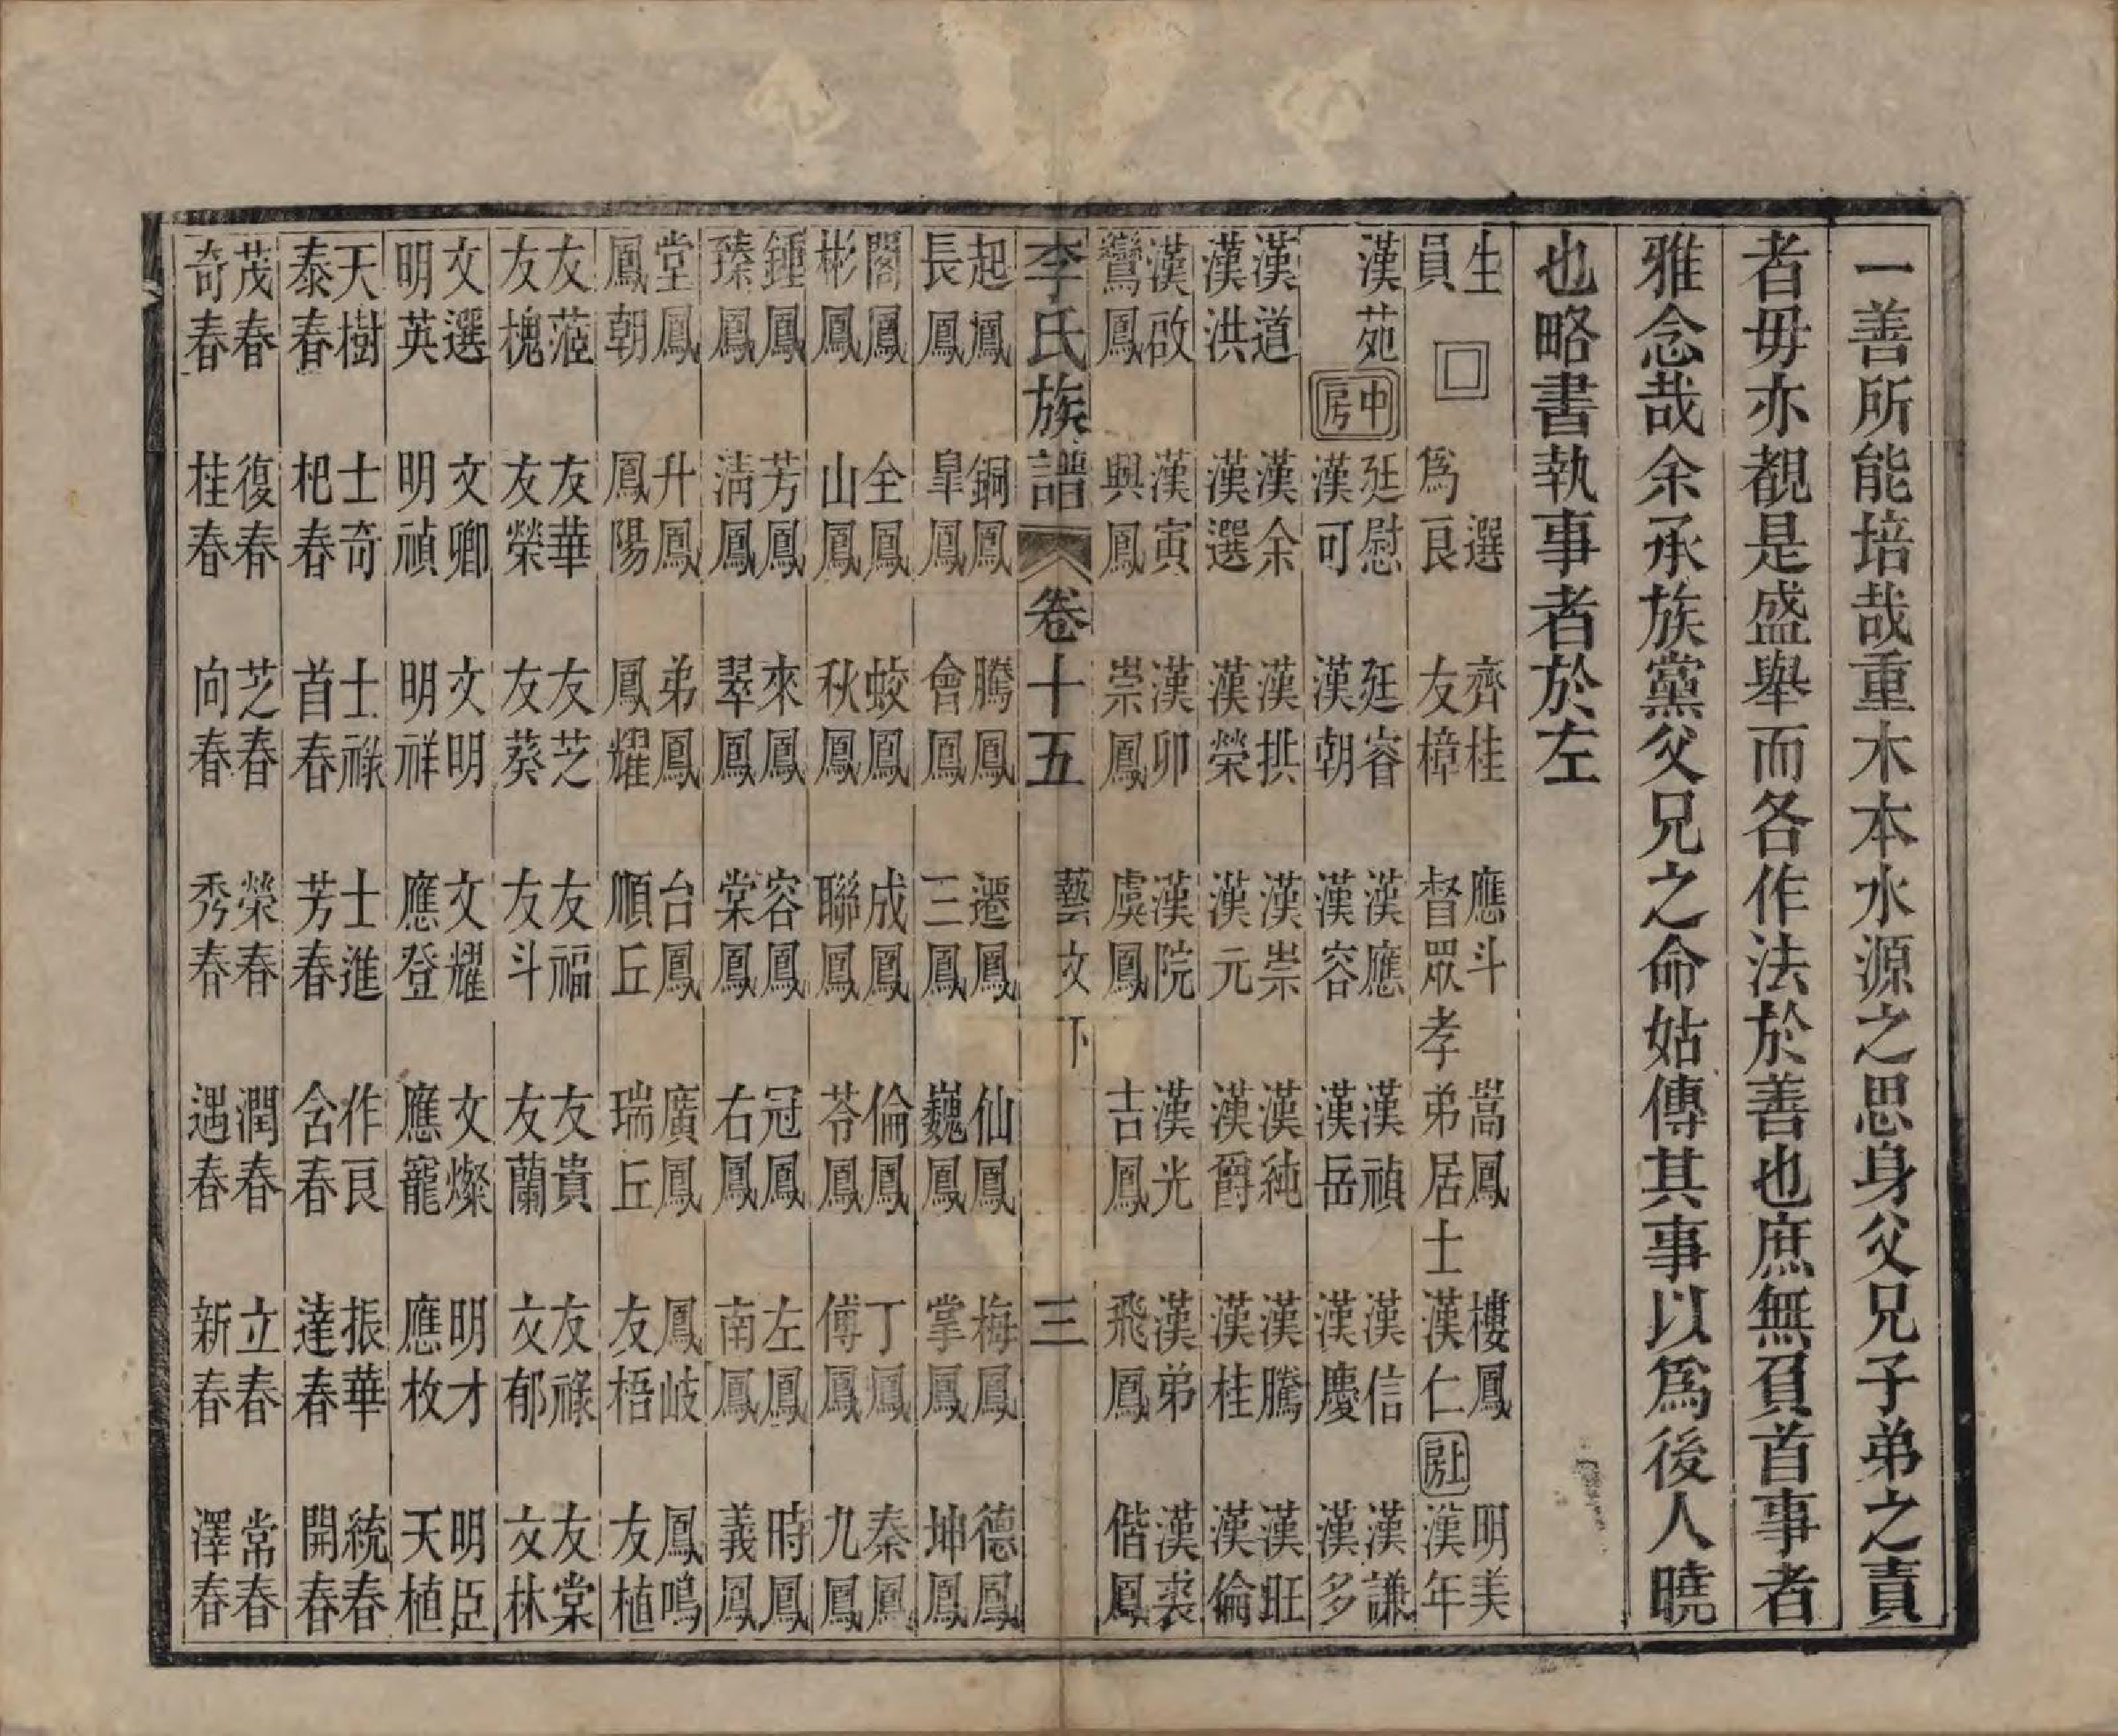 一善所能培哉重木本水源之思身父兄子弟之責
者毋亦覩是盛舉而各作法於善也庶無負首事者
雅念哉余承族黨父兄之命姑傳其事以爲後人曉
也略書執事者於左
生 選 齊桂 應斗 嵩鳳 樓鳳 明美
員 爲良 友樟 督眾 孝弟居士 漢仁 上房 漢年
漢苑 中房 廷慰 廷睿 漢應 漢禎 漢信 漢謙
漢可 漢朝 漢容 漢岳 漢慶 漢多
漢道 漢余 漢拱 漢崇 漢純 漢騰 漢旺
漢洪 漢選 漢榮 漢元 漢爵 漢桂 漢倫
漢啟 漢寅 漢卯 漢院 漢光 漢弟 漢裘
鸞鳳 興鳳 崇鳳 虞鳳 吉鳳 飛鳳 偕鳳
李氏族譜 卷十五 藝文下 三
起鳳 銅鳳 騰鳳 遷鳳 仙鳳 梅鳳 德鳳
長鳳 皐鳳 會鳳 三鳳 巍鳳 掌鳳 坤鳳
閣鳳 全鳳 蛟鳳 成鳳 倫鳳 丁鳳 秦鳳
彬鳳 山鳳 秋鳳 聯鳳 苓鳳 傅鳳 九鳳
鍾鳳 芳鳳 來鳳 容鳳 冠鳳 左鳳 時鳳
臻鳳 清鳳 翠鳳 棠鳳 右鳳 南鳳 義鳳
堂鳳 升鳳 弟鳳 台鳳 廣鳳 鳳岐 鳳鳴
鳳朝 鳳陽 鳳耀 順丘 瑞丘 友梧 友植
友蒞 友華 友芝 友福 友貴 友祿 友棠
友槐 友榮 友葵 友斗 友蘭 文郁 文林
文選 文卿 文明 文耀 文燦 明才 明臣
明英 明禎 明祥 應登 應寵 應枚 天植
天樹 士奇 士祿 士進 作良 振華 統春
泰春 杷春 首春 芳春 含春 達春 開春
茂春 復春 芝春 榮春 潤春 立春 常春
奇春 桂春 向春 秀春 遇春 新春 澤春